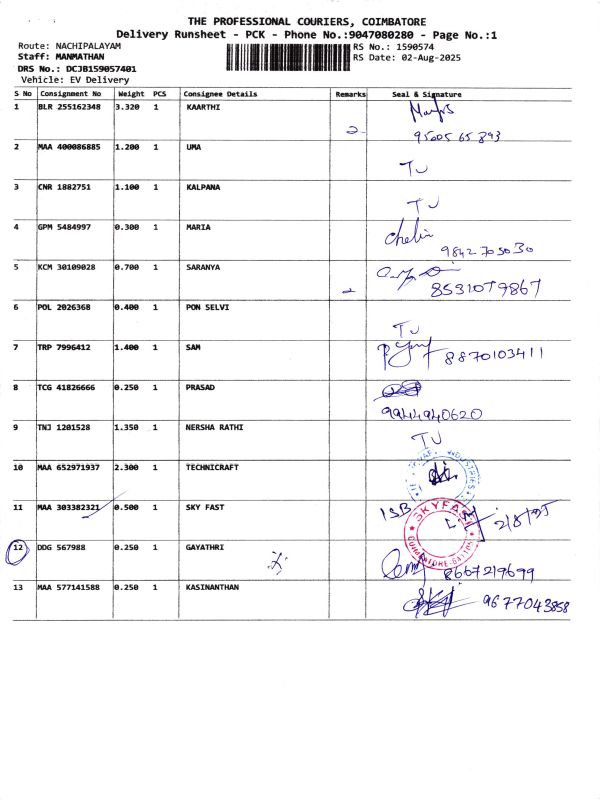 THE PROFESSIONAL COURIERS, COIMBATORE
Delivery Runsheet - PCK - Phone No.:9047080280 - Page No.:1
Route: NACHIPALAYAM RS No.: 1590574
Staff: MANMATHAN RS Date: 02-Aug-2025
DRS No.: DCJB159057401
Vehicle: EV Delivery
S No Consignment No Weight PCS Consignee Details Remarks Seal & Signature
1 BLR 255162348 3.320 1 KAARTHI
2 9500565893
2 MAA 400086885 1.200 1 UMA
TU
3 CNR 1882751 1.100 1 KALPANA
TU
4 GPM 5484997 0.300 1 MARIA
9842705030
5 KCM 30109028 0.700 1 SARANYA
8531079867
6 POL 2026368 0.400 1 PON SELVI
TU
7 TRP 7996412 1.400 1 SAM
8870103411
8 TCG 41826666 0.250 1 PRASAD
9944940620
9 TNJ 1201528 1.350 1 NERSHA RATHI
TU
10 MAA 652971937 2.300 1 TECHNICRAFT
11 MAA 303382321 0.500 1 SKY FAST
2/8/25
12 DDG 567988 0.250 1 GAYATHRI
8667219699
13 MAA 577141588 0.250 1 KASINANTHAN
9677043858